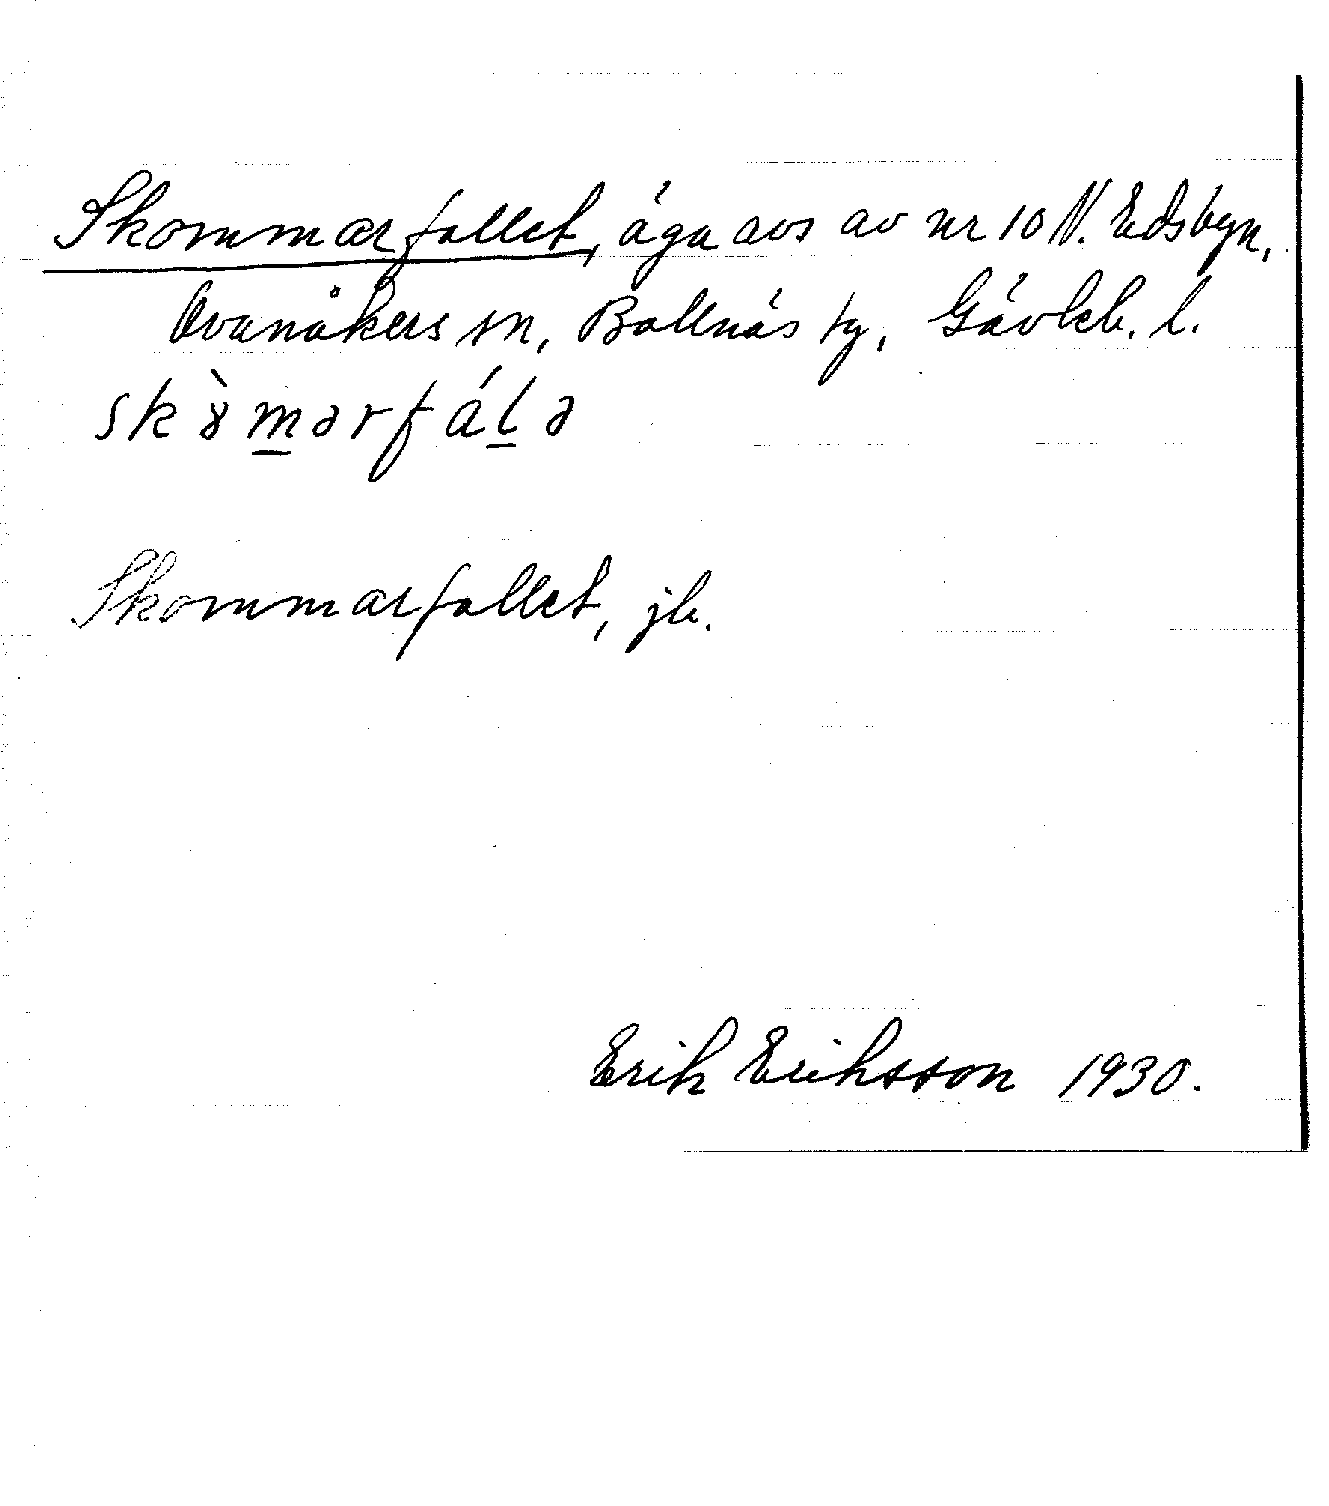 Skommarfallet, äga avs av nr 10 N. Edsbyn,
Ovanåkers sn, Bollnäs tg, Gävleb. l.
skɤ̀m̲ərfál̲ə
Skommarfallet, jb.
Erik Eriksson 1930.